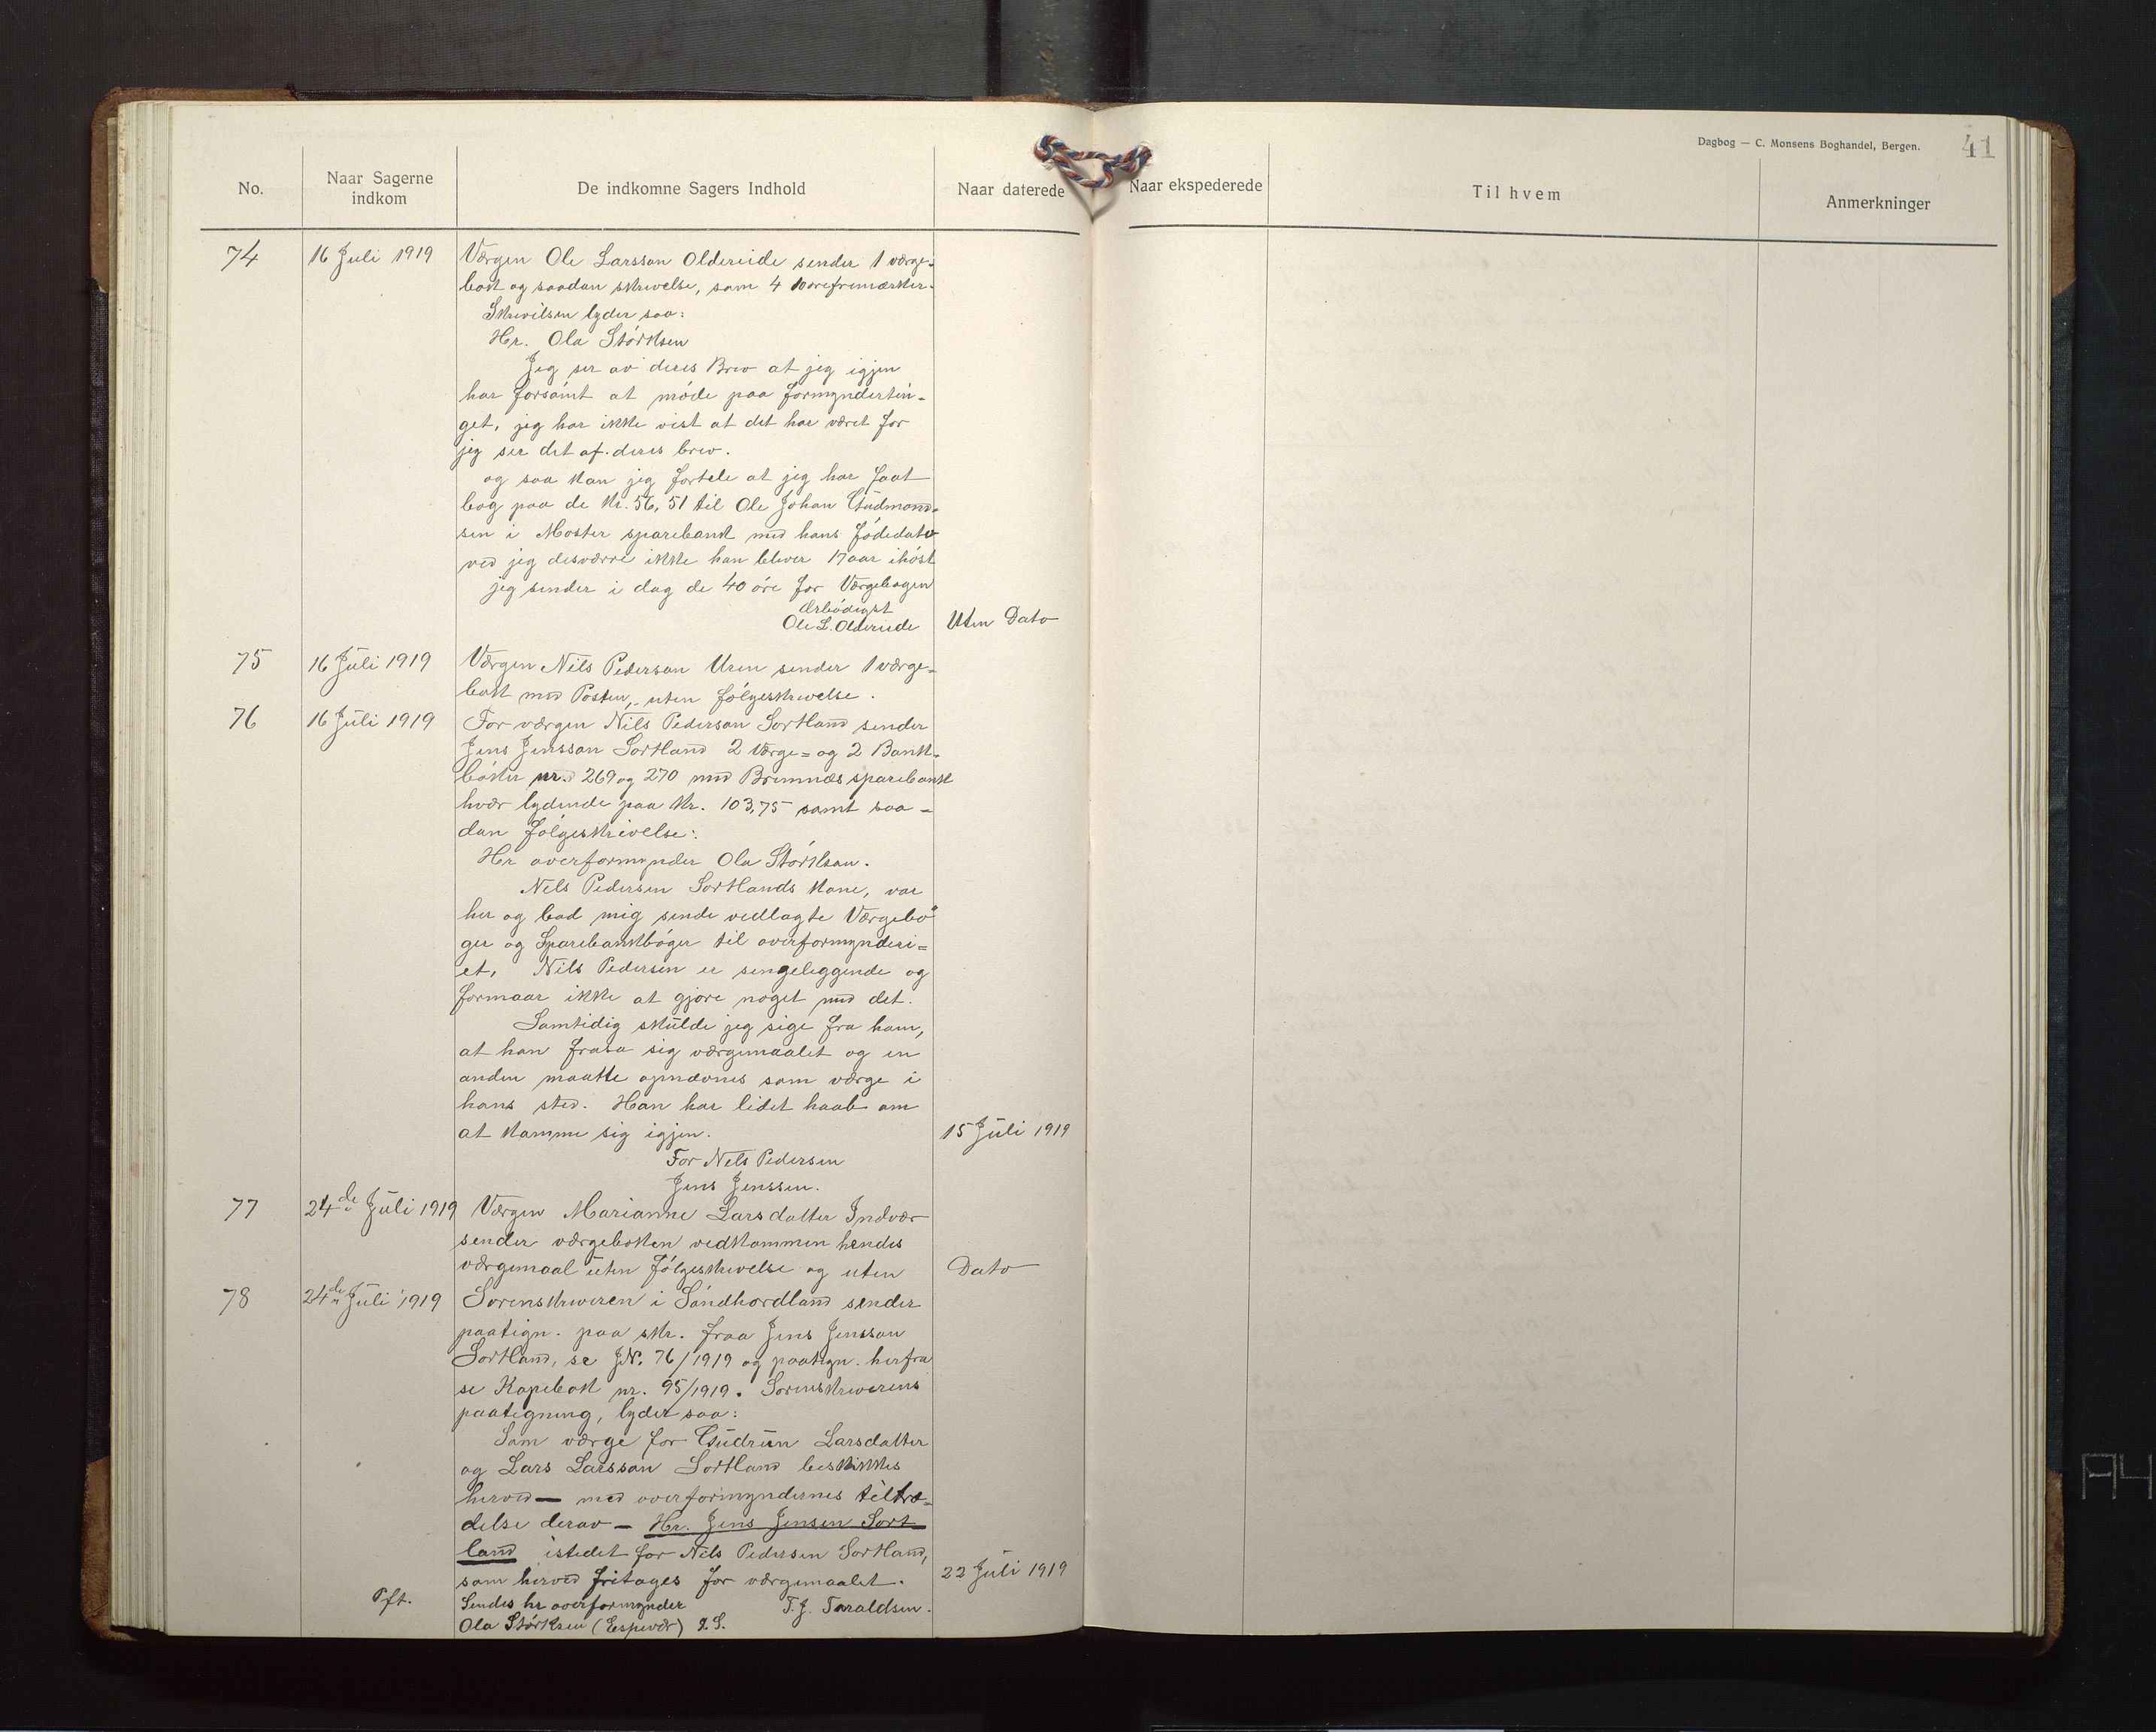 Dagbog — C. Monsens Boghandel, Bergen.
41
No.
Naar Sagerne indkom
De indkomne Sagers Indhold
Naar daterede
Naar ekspederede
Til hvem
Anmerkninger
74 16 Juli 1919 Værgen Ole Larsson Oldereide sender 1 værge-
bok og saadan skrivelse, som 4 10 ørefrimærker.
Skrivelsen lyder saa:
Hr. Ola Størksen
Jeg ser av deres Brev at jeg igjen
har forsømt at møde paa formyndertin-
get, jeg har ikke vist at det har været før
jeg ser det af deres brev.
og saa kan jeg fortele at jeg har faat
bog paa de Kr. 56,51 til Ole Johan Gudmand-
sen i Moster sparebank med hans fødedato
ved jeg desværre ikke han bliver 17 aar ihøst
jeg sender i dag de 40 øre for Værgebogen
Ærbødigst
Ole L. Oldereide Uten Dato
75 16 Juli 1919 Værgen Nils Pederson Uren sender 1 værge-
bok med Posten, uten følgeskrivelse.
76 16 Juli 1919 For værgen Nils Pederson Sortland sender
Jens Jensson Sortland 2 Værge= og 2 Bank-
bøker nr. 269 og 270 med Bremnæs sparebank
hvær lydende paa Kr. 103,75 samt saa-
dan følgeskrivelse:
Hr overformynder Ola Størkson.
Nels Pedersen Sortlands Kone, var
her og bad mig sende vedlagte Værgebø
ger og Sparebankbøger til overformynderi=
et, Nils Pedersen er sengeleggende og
formaar ikke at gjøre noget med det.
Samtidig skulde jeg sige fra ham,
at han frasa sig værgemaalet og en
anden maatte opnævnes som værge i
hans sted. Han har lidet haab om
at komme sig igjen. 15 Juli 1919
For Nels Pedersen
Jens Jenssen.
77 24de Juli 1919 Værgen Marianne Larsdatter Indvær
sender værgeboken vedkommen hendes
værgemaal uten Følgeskrivelse og uten Dato
78 24de Juli 1919 Sorenskriveren i Søndhordland sender
paatign. paa skr. fraa Jens Jensson
Sortland, se JN. 76/1919 og paatign. herfra
se Kopibok nr. 95/1919. Sorenskriverens
paategning, lyder saa:
Som værge for Gudrun Larsdatter
og Lars Larsson Sortland beskikkes
herved — med overformyndernes tiltræ-
delse derav — Hr. Jens Jensen Sort
land istedet for Nils Pedersen Sortland,
som herved fritages for værgemaalet. 22 Juli 1919
Pft. Sendes hr overformynder T. J. Taraldsen.
Ola Størksen (Espevær) 2 S.